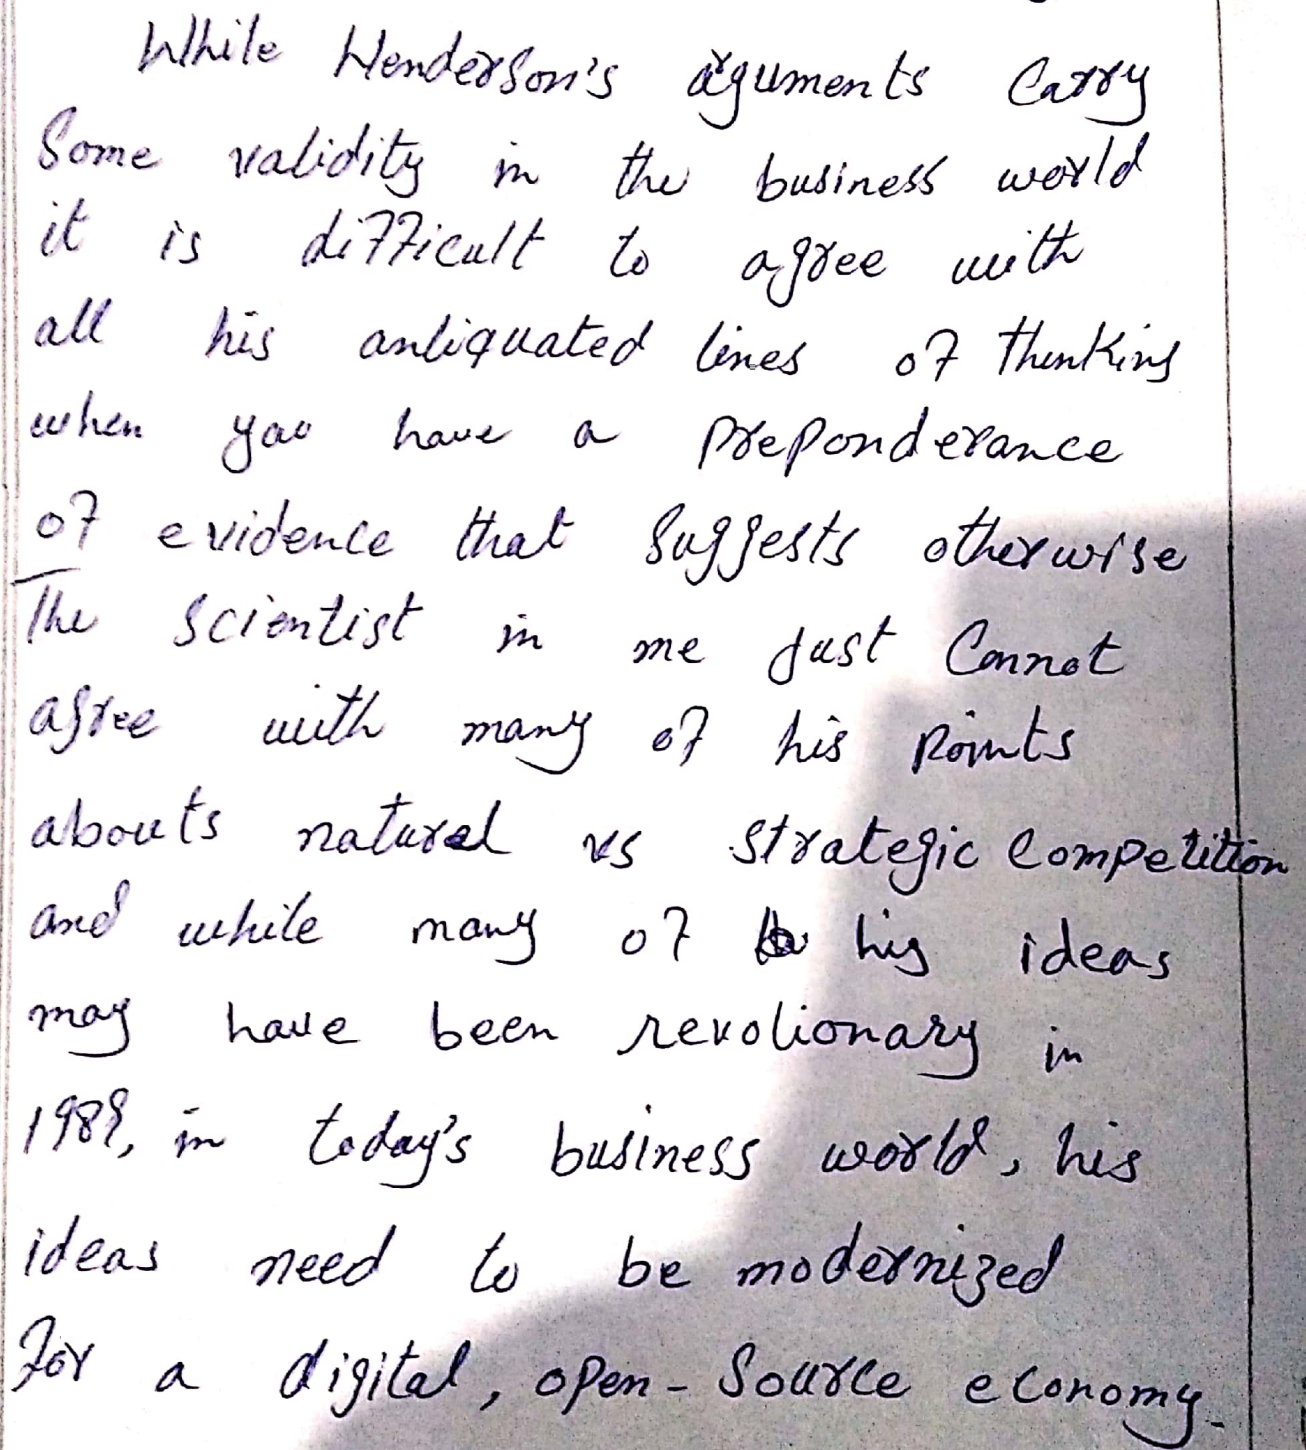 While Henderson's arguments carry
Some validity in the business world
it is difficult to agree with
all his antiquated lines of thinking
when you have a preponderance
of evidence that suggests otherwise
The scientist in me just cannot
agree with many of his points
abouts natural vs strategic competition
and while many of his ideas
may have been revolionary in
1989, in today's business world, his
ideas need to be modernized
for a digital, open-source economy.